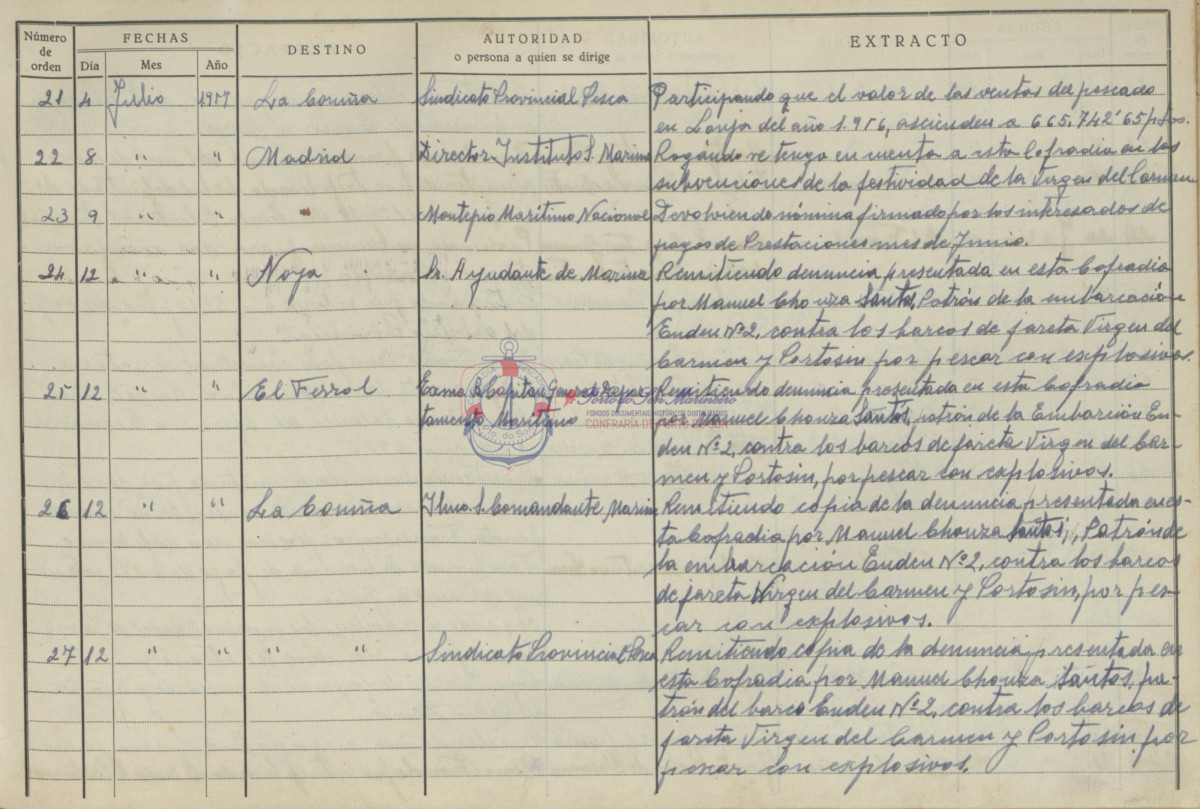 Número de orden FECHAS DESTINO AUTORIDAD o persona a quien se dirige EXTRACTO
Día Mes Año
21 4 Julio 1957 La Coruña Sindicato Provincial Pesca Participando que el valor de las ventas del pescado
en Lonja del año 1.956, ascienden a 665.742'65 ptas.
22 8 " " Madrid Director Instituto S. Marina Rogándo se tenga en cuenta a esta Cofradia en las
subvenciones de la festividad de la Virgen del Carmen
23 9 " " " Montepio Maritimo Nacional Devolviendo nómina firmada por los interesados de
pagos de Prestaciones mes de Junio.
24 12 " " Noya Sr. Ayudante de Marina Remitiendo denuncia presentada en esta Cofradia
por Manuel Chouza Santos, Patrón de la embarcación
Enden Nº 2, contra los barcos de jareta Virgen del
Carmen y Portosin por pescar con explosivos.
25 12 " " El Ferrol Exmo Sr Capitán General Depar- Remitiendo denuncia presentada en esta Cofradia
tamento Maritimo por Manuel Chouza Santos, patrón de la Embarción En-
den Nº 2, contra los barcos de jareta Virgen del Car-
men y Portosin, por pescar con explosivos.
26 12 " " La Coruña Ilmo. S. Comandante Marina Remitiendo copia de la denuncia presentada en es-
ta Cofradia por Manuel Chouza Santos, Patrón de
la embarcación Enden Nº 2, contra los barcos
de jareta Virgen del Carmen y Portosin, por pes-
car con explosivos.
27 12 " " " " Sindicato Provincial Pesca Remitiendo copia de la denuncia presentada en
esta Cofradia por Manuel Chouza Santos, pa-
trón del barco Enden Nº 2, contra los barcos de
jareta Virgen del Carmen y Portosin por
pescar con explosivos.
FONDOS DOCUMENTAIS HISTÓRICOS DIXITALIZADOS
CONFRARÍA DE PORTO DO SON